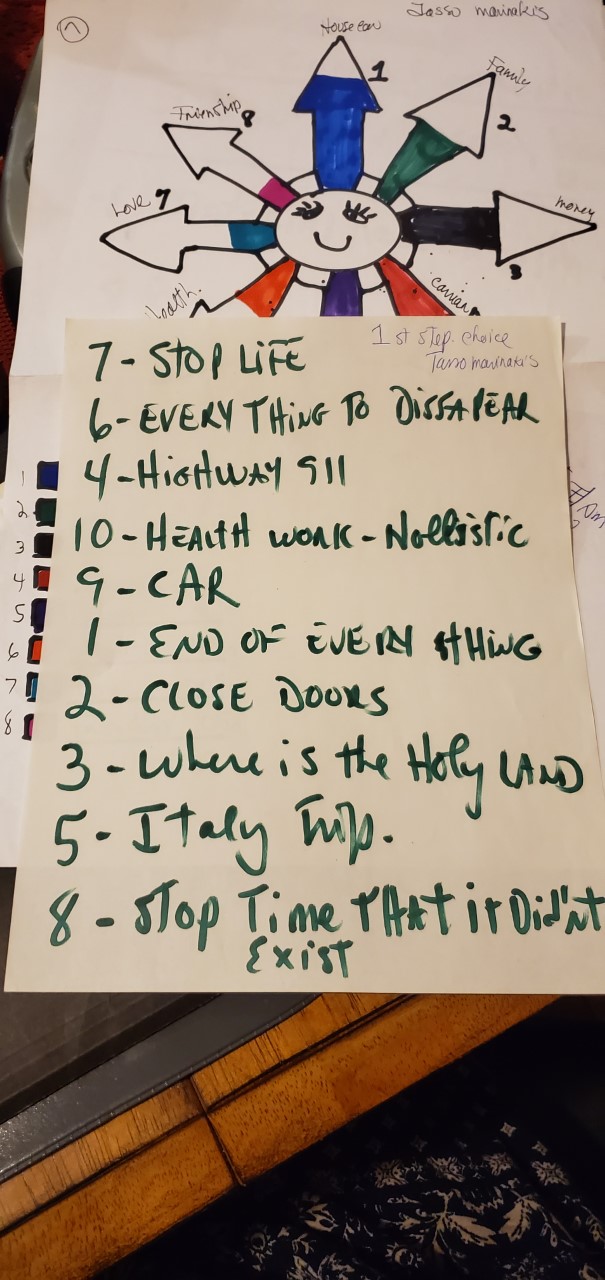 Tasso marinaki's
House car
1
Family
2
Friendship 8
Love 7
money
3
health.
carrian
1st step. choice
Tasso marinaki's
7 - STOP LiFE
6 - EVERY THiNG TO DiSSAPEAR
4 - HiGHWAY 911
10 - HEALTH WORK - Nollistic
9 - CAR
1 - END OF EVERY tHiNG
2 - CLOSE DOORS
3 - Where is the Holy LAND
5 - Italy Trip.
8 - STOP Time THAT iT Did'Nt
Exist
1
2
3
4
5
6
7
8